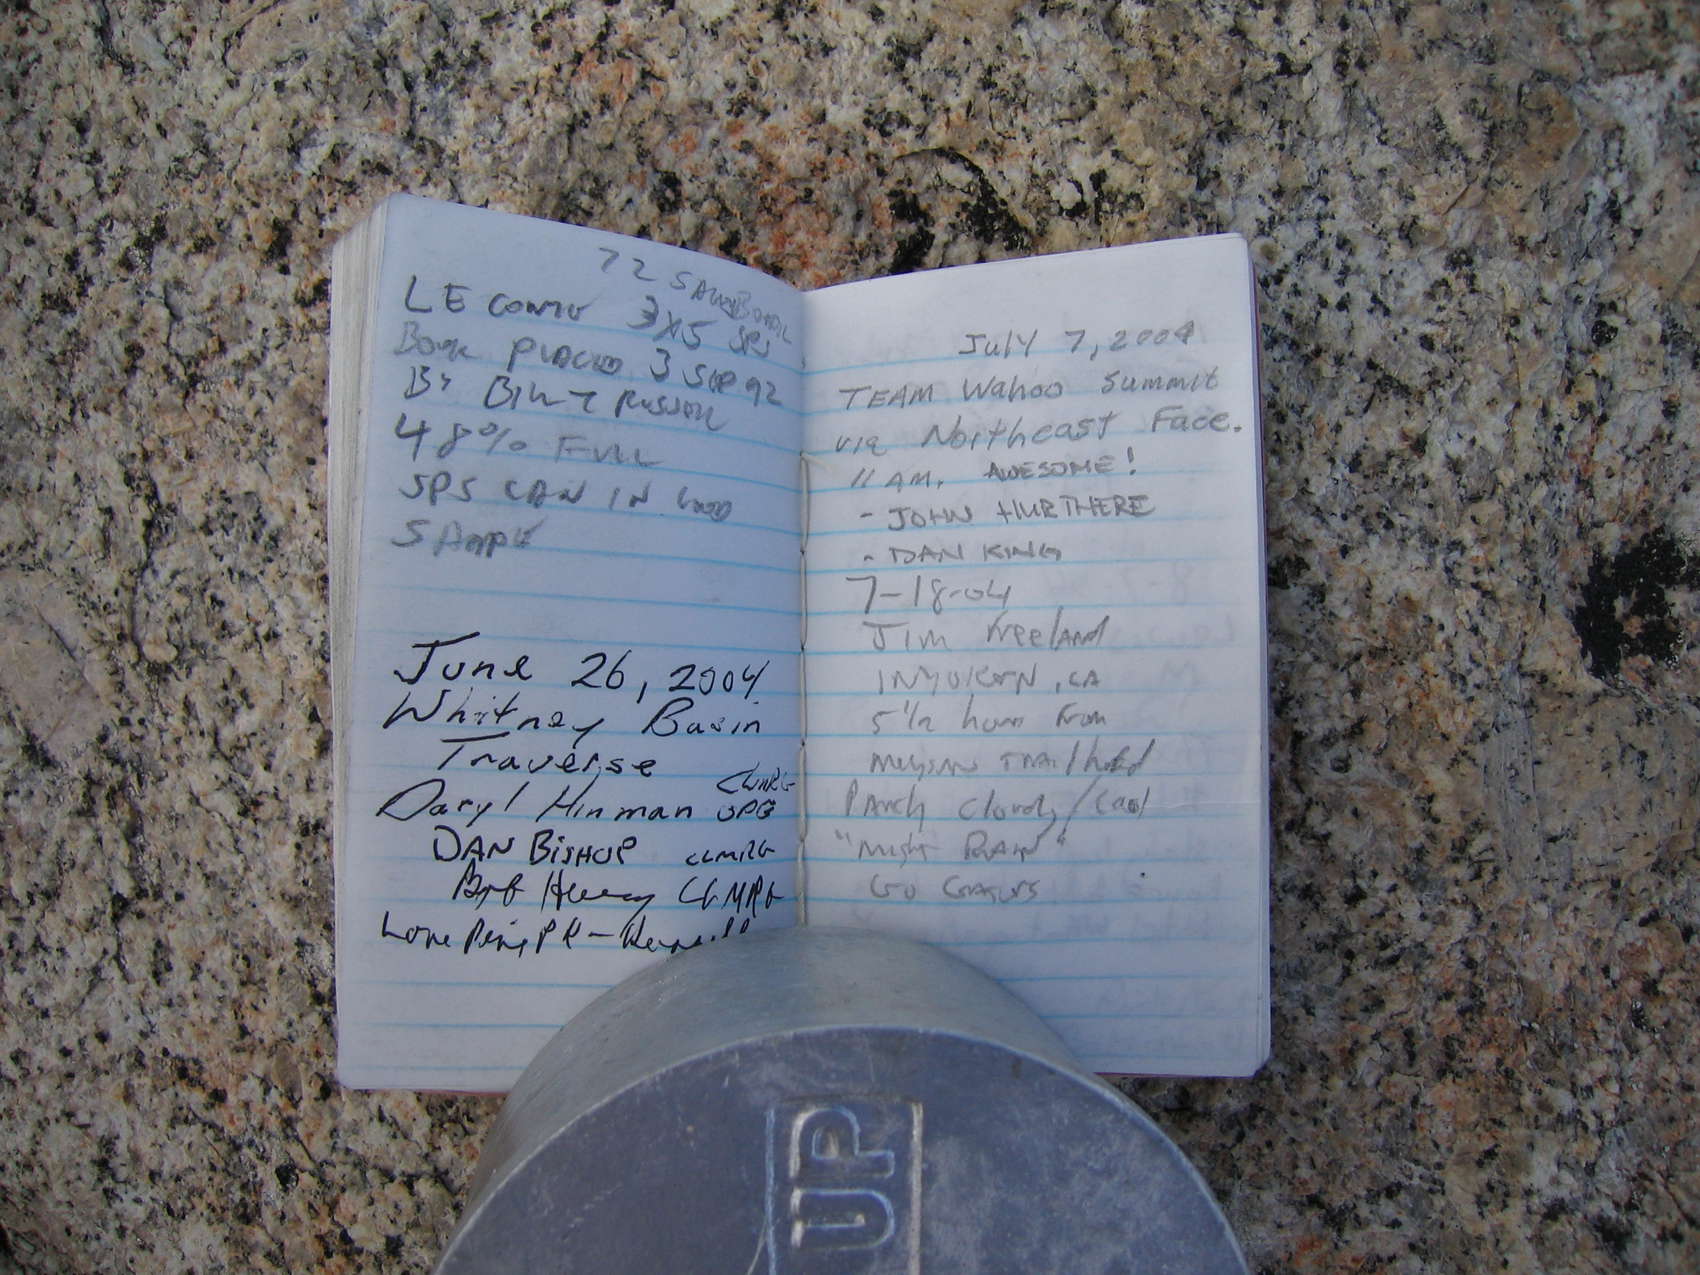 LE CONTE 3X5 SPS
BOOK PLACED 3 SEP 92
BY BILL T RUSSELL
48% FULL
SPS CAN IN GOOD
SHAPE
June 26, 2004
Whitney Basin
Traverse
Daryl Hinman
DAN BISHOP CLMRG
Bob Henry CLMRG
Lone Pine PK -
July 7, 2004
TEAM Wahoo Summit
via Northeast Face.
11 AM. AWESOME!
- JOHN HURTHERE
- DAN KING
7-18-04
Jim Freeland
INYOKERN, CA
5 1/2 hours From
Trailhead
Partly Cloudy/Cool
"Might RAIN"
GO
UP